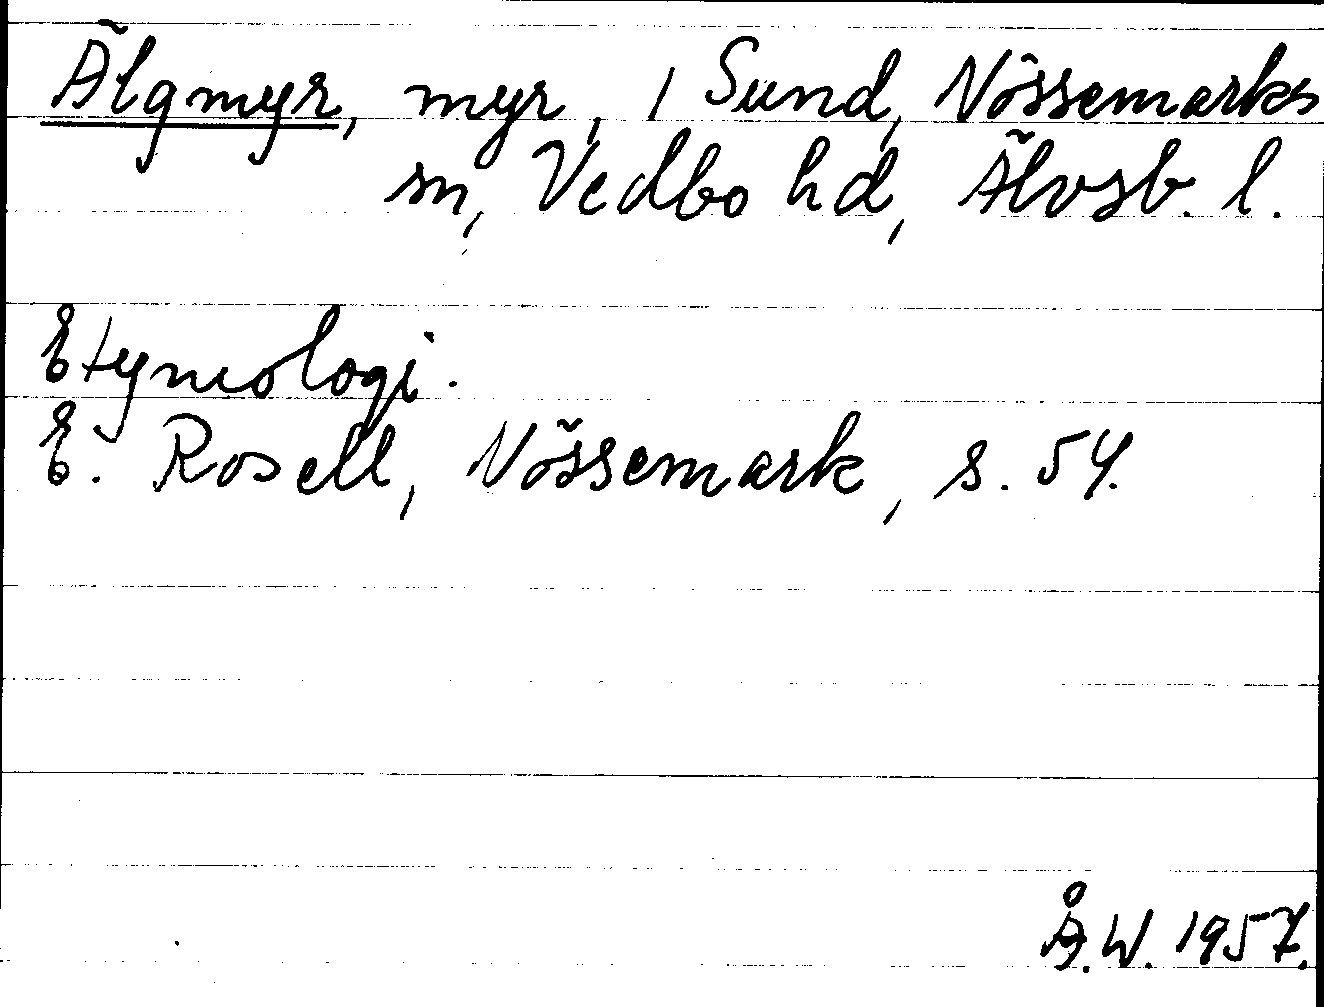 Älgmyr, myr, 1 Sund, Nössemarks
sn, Vedbo hd, Älvsb. l.
Etymologi.
E. Rosell, Nössemark, s. 54.
Å.W. 1957.